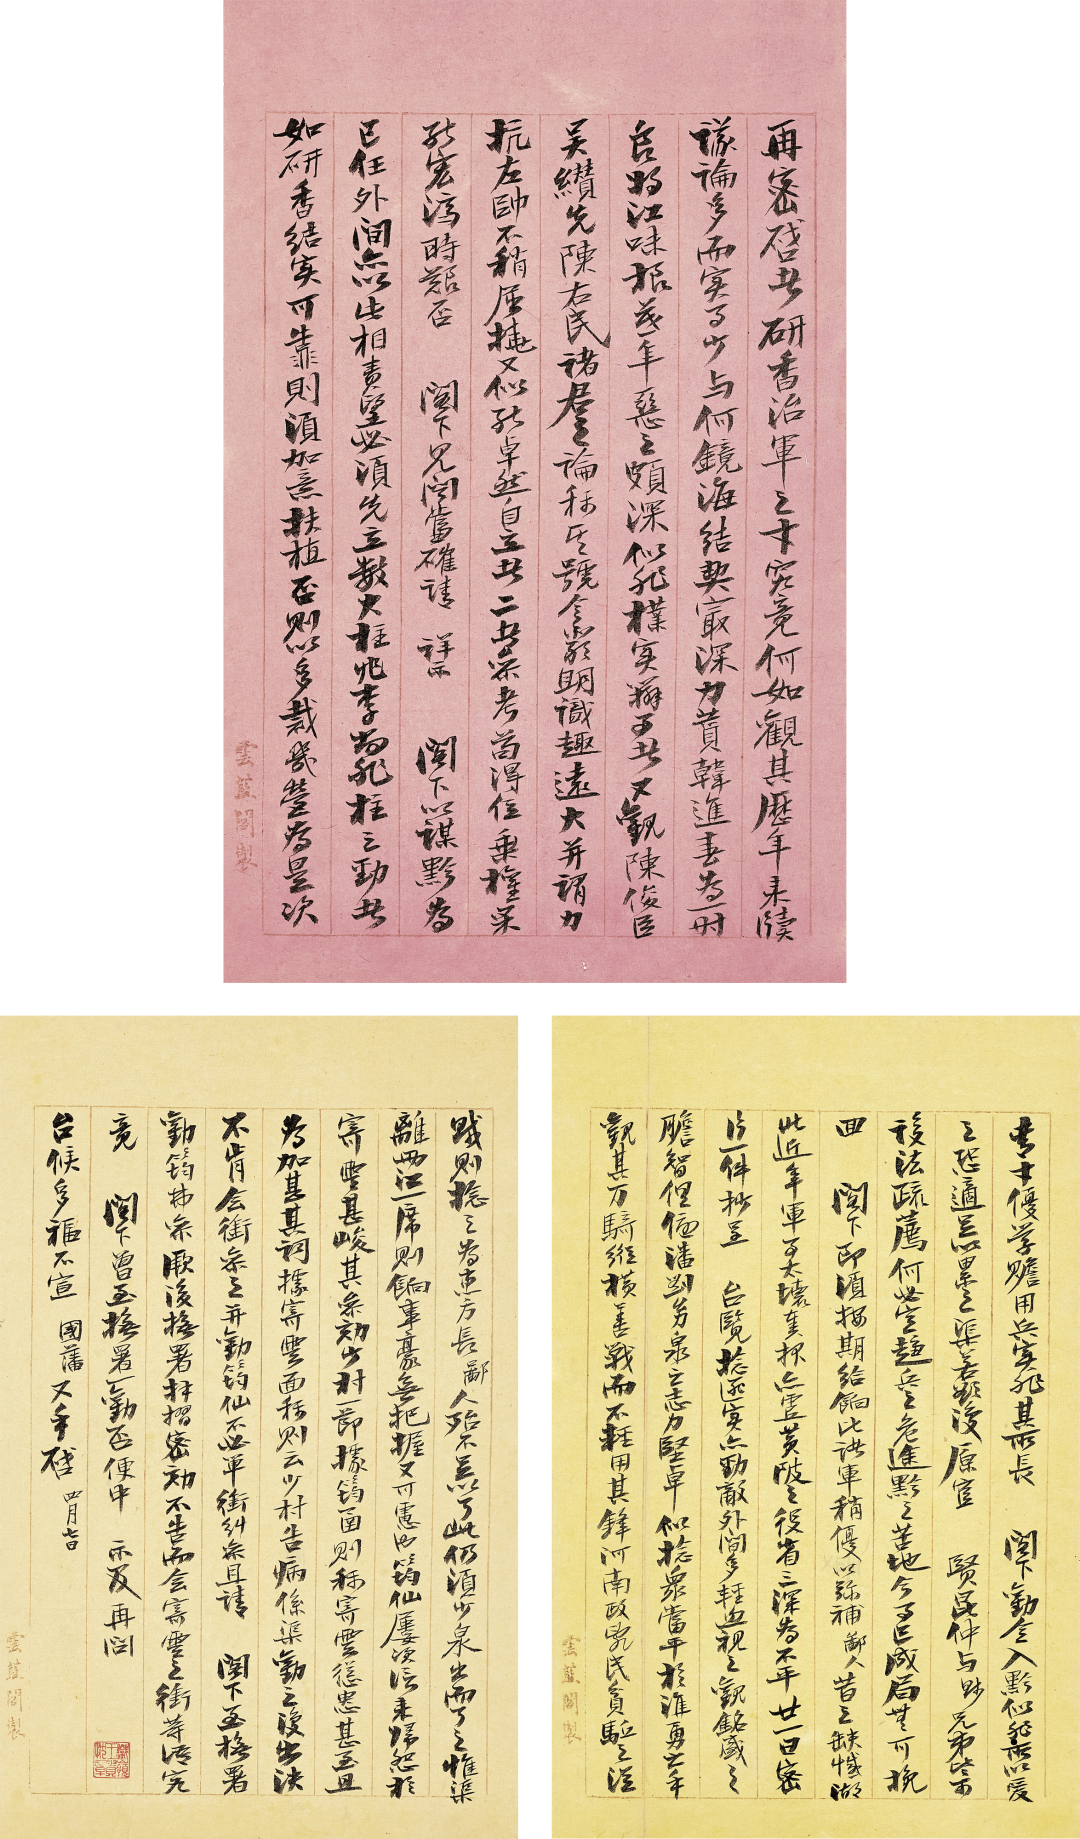 再密啓者研香治軍之才究竟何如觀其歷年來牘
議論多而實事少与何鏡海結契最深力贊韓進春為一時
名將江味根 年懇之頗深似非樸實辦事者又觀陳俊臣
吳纘先陳右民諸君之論稱其號令嚴明識趣遠大并謂力
抗左帥不稍屈撓又似能卓然自立者二者參考茍得位乘權果
能宏濟時艱否 閣下見聞當確請 詳示 閣下以謀黔為
己任外間亦以此相責望必須先立數大柱非李尚非柱之勁者
如研香結實可靠則須加意扶植否則以多裁幾營為是次
雲藍閣製
青才優學贍用兵實非其所長 閣下勸令入黔似非所以愛
之恐適足以累之渠若欲復原官 賢昆仲与 兄弟皆當
設法疏薦何必定趨兵之危進黔之苦地今事已成局無可挽
回 閣下即須按期給餉比諸軍稍優以彌補鄙人昔之缺憾湖
北近年軍事大壞奏報亦虛黃陂之役省三深為不平廿一日密
片一件抄呈 台覽捻逆實亦勁敵外間多輕視之觀銘盛之
膽智但 潘劉 泉之志力堅卓似捻衆當平於淮勇之手
觀其万騎縱橫善戰而不輕用其鋒河南政亂民貧驅之從
雲藍閣製
賊則捻之為患方長鄙人殆不足以了此仍須少泉出而了之惟渠
離兩江一席則餉事毫無把握又可慮也筠仙屢次信來歸怨於
寄雲甚峻其參劾少村一節據筠函則稱寄雲慫恿甚至且
為加甚其詞據寄雲面稱則云少村告病係渠勸之後出決
不肯会銜參之并勸筠仙不必單銜糾參且請 閣下至撫署
勸筠弗參厥後撫署拜摺密劾不告而会寄雲之銜等語究
竟 閣下曾至撫署一勸否便中 示及再問
台候多福不宣 國藩又手啓 四月 日
雲藍閣製